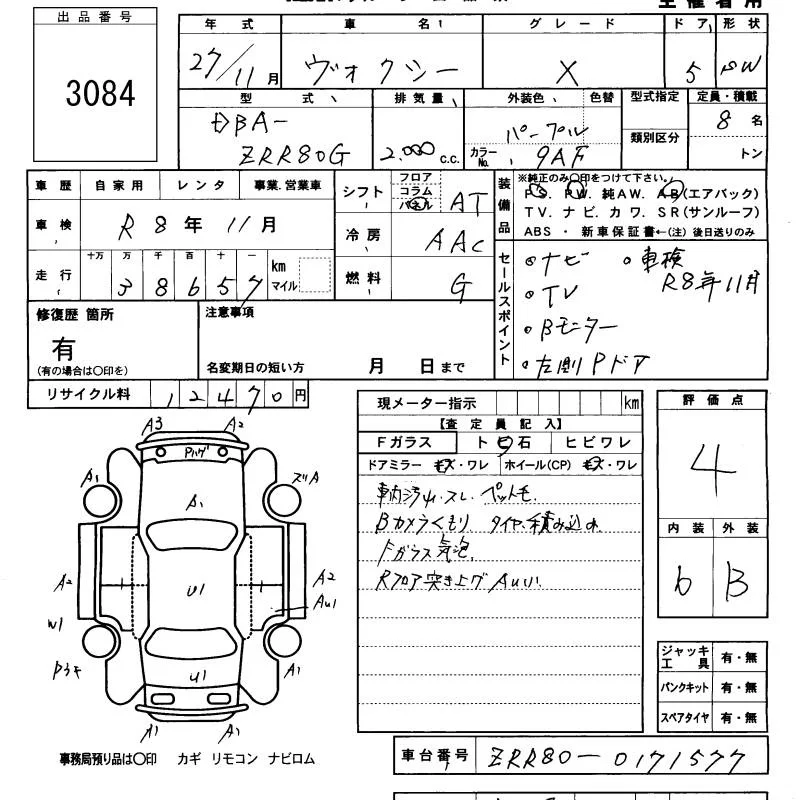 出品番号
3084
年式 車名 グレード ドア 形状
27/11月 ヴォクシー X 5 SW
型式 排気量 外装色 色替 型式指定 定員・積載
DBA-
ZRR80G 2.000c.c. パープル 8名
カラーNo. 9AF 類別区分 トン
車歴 自家用 レンタ 事業.営業車
車検 R8年11月
走行 十万 万 千 百 十 一
38657 km マイル
シフト フロア コラム パネル AT
冷房 AAC
燃料 G
装備品
※純正のみ〇印をつけて下さい。
PS. PW. 純AW. AB(エアバック)
TV. ナビ. カワ. SR(サンルーフ)
ABS ・ 新車保証書←(注) 後日送りのみ
セールスポイント
ナビ 車検
TV R8年11月
Bモニター
左側Pドア
修復歴 箇所
有
(有の場合は〇印を)
注意事項
名変期日の短い方 月 日まで
リサイクル料 12470円
現メーター指示 km
【査定員記入】
Fガラス トビ石 ヒビワレ
ドアミラー キズ・ワレ ホイール(CP) キズ・ワレ
車内汚れ・スレ ペット毛
Bカメラくもり タイヤ積み込み
Fガラス気泡
Rフロア突き上げ AU1い
評価点
4
内装 外装
b B
ジャッキ 工具 有・無
パンクキット 有・無
スペアタイヤ 有・無
A3 A2
Pハゲ
A1 ズリA
A1
A2 U1 A2
AU1
W1
U1
A1
A1 A1
事務局預り品は〇印 カギ リモコン ナビロム
車台番号 ZRR80-0171577